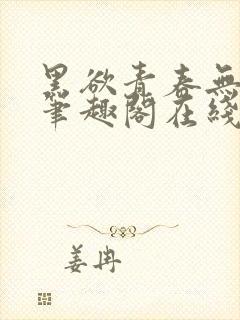 黑欲青春無
筆趣閣在綫
姜冉